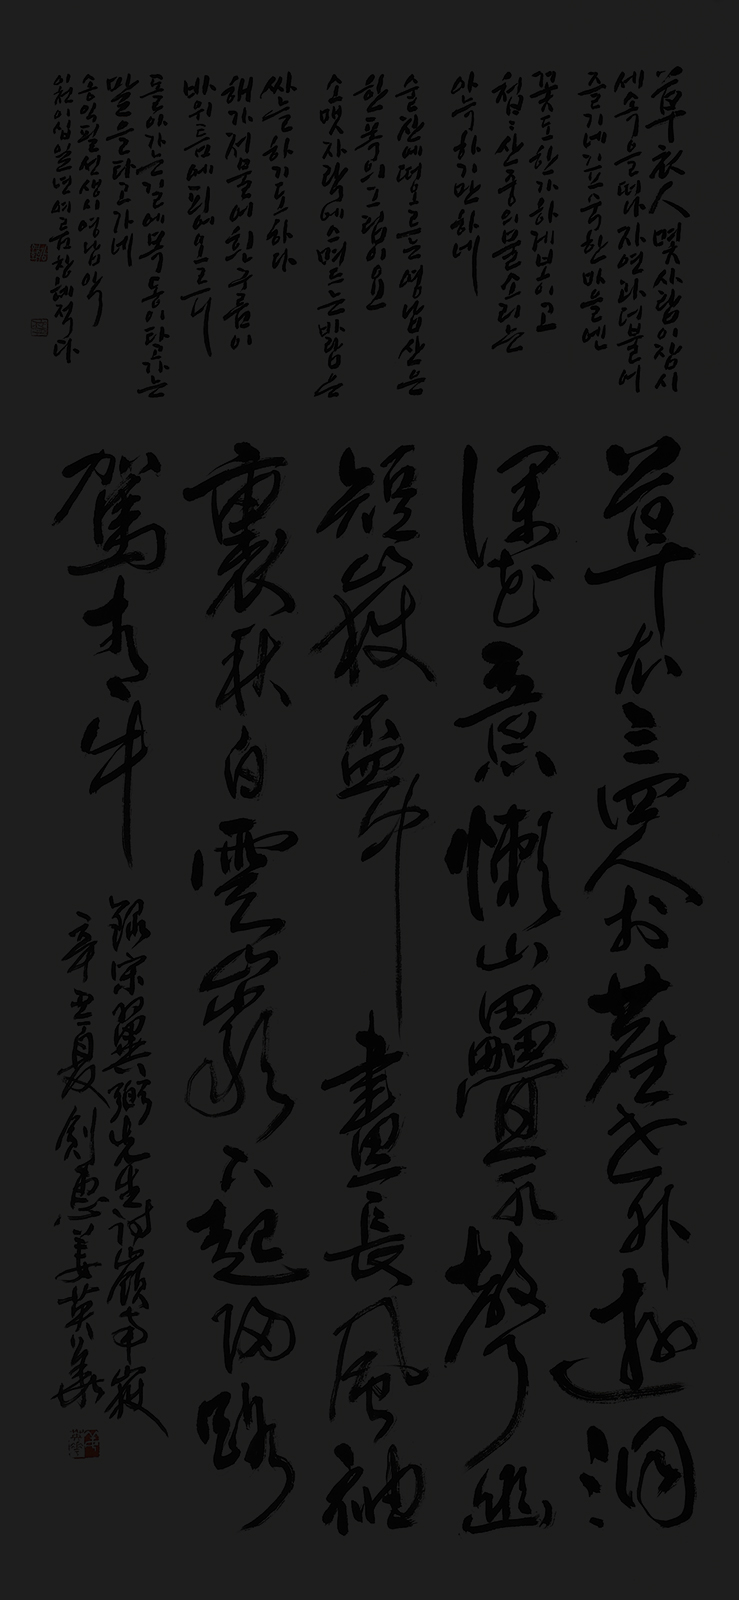 草衣人 몇 사람이 잠시
세속을 떠나 자연과 더불어
즐기네 깊숙한 마을엔
꽃도 한가하게 보이고
첩첩산중의 물소리는
아늑하기만 하네
술잔에 떠오르는 영남산은
한 폭의 그림이요
소맷자락에 스며드는 바람은
싸늘하기도 하다
해가 저물에 흰구름이
바위틈에 피에오르니
돌아가는 길에 목동이 탈고가는
말을 타고 가네
송익필선생시 영남악
이천이십일년 여름 창혜 적다
草衣三四人於塵世外遊洞
深花意懶山疊水聲幽
短嶽盃中畫長風袖
裏秋白雲巖下起歸路
駕青牛
錄宋翼弼先生詩嶺南嶽
辛丑夏創惠姜英